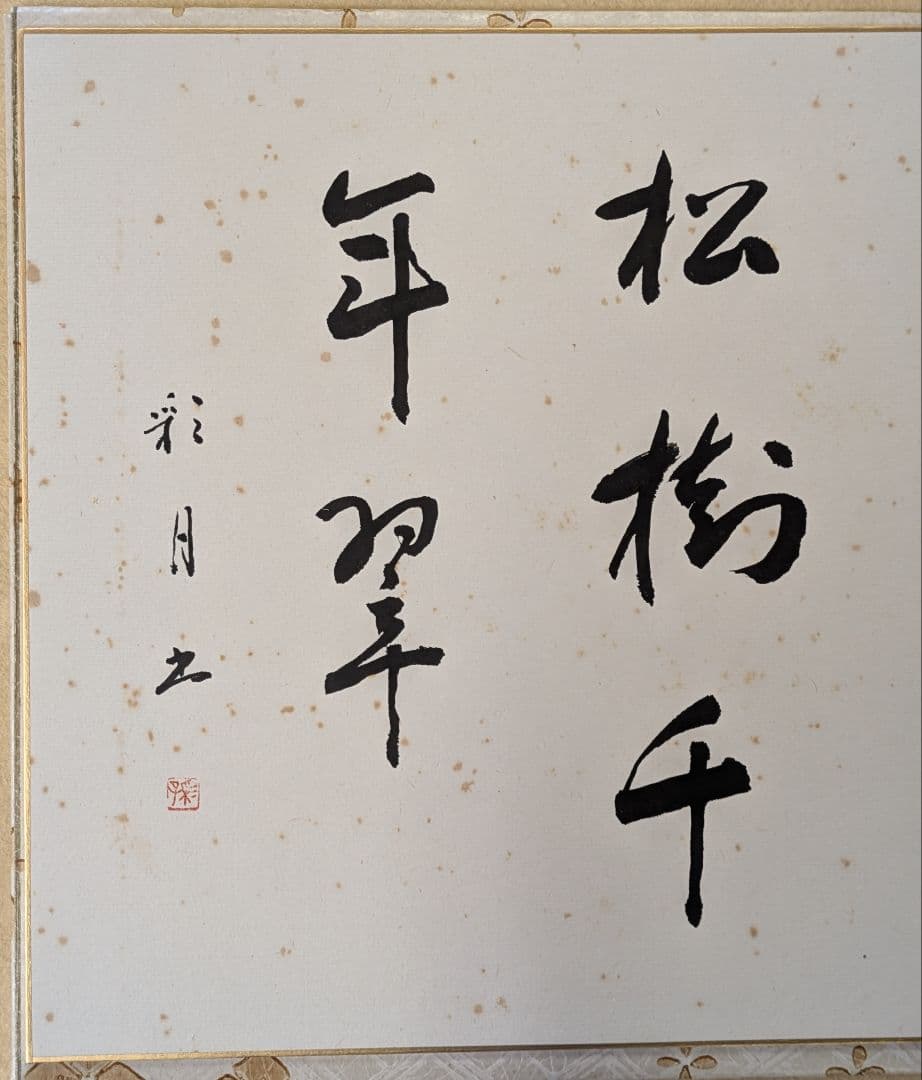 松樹千
年翠
彩月書